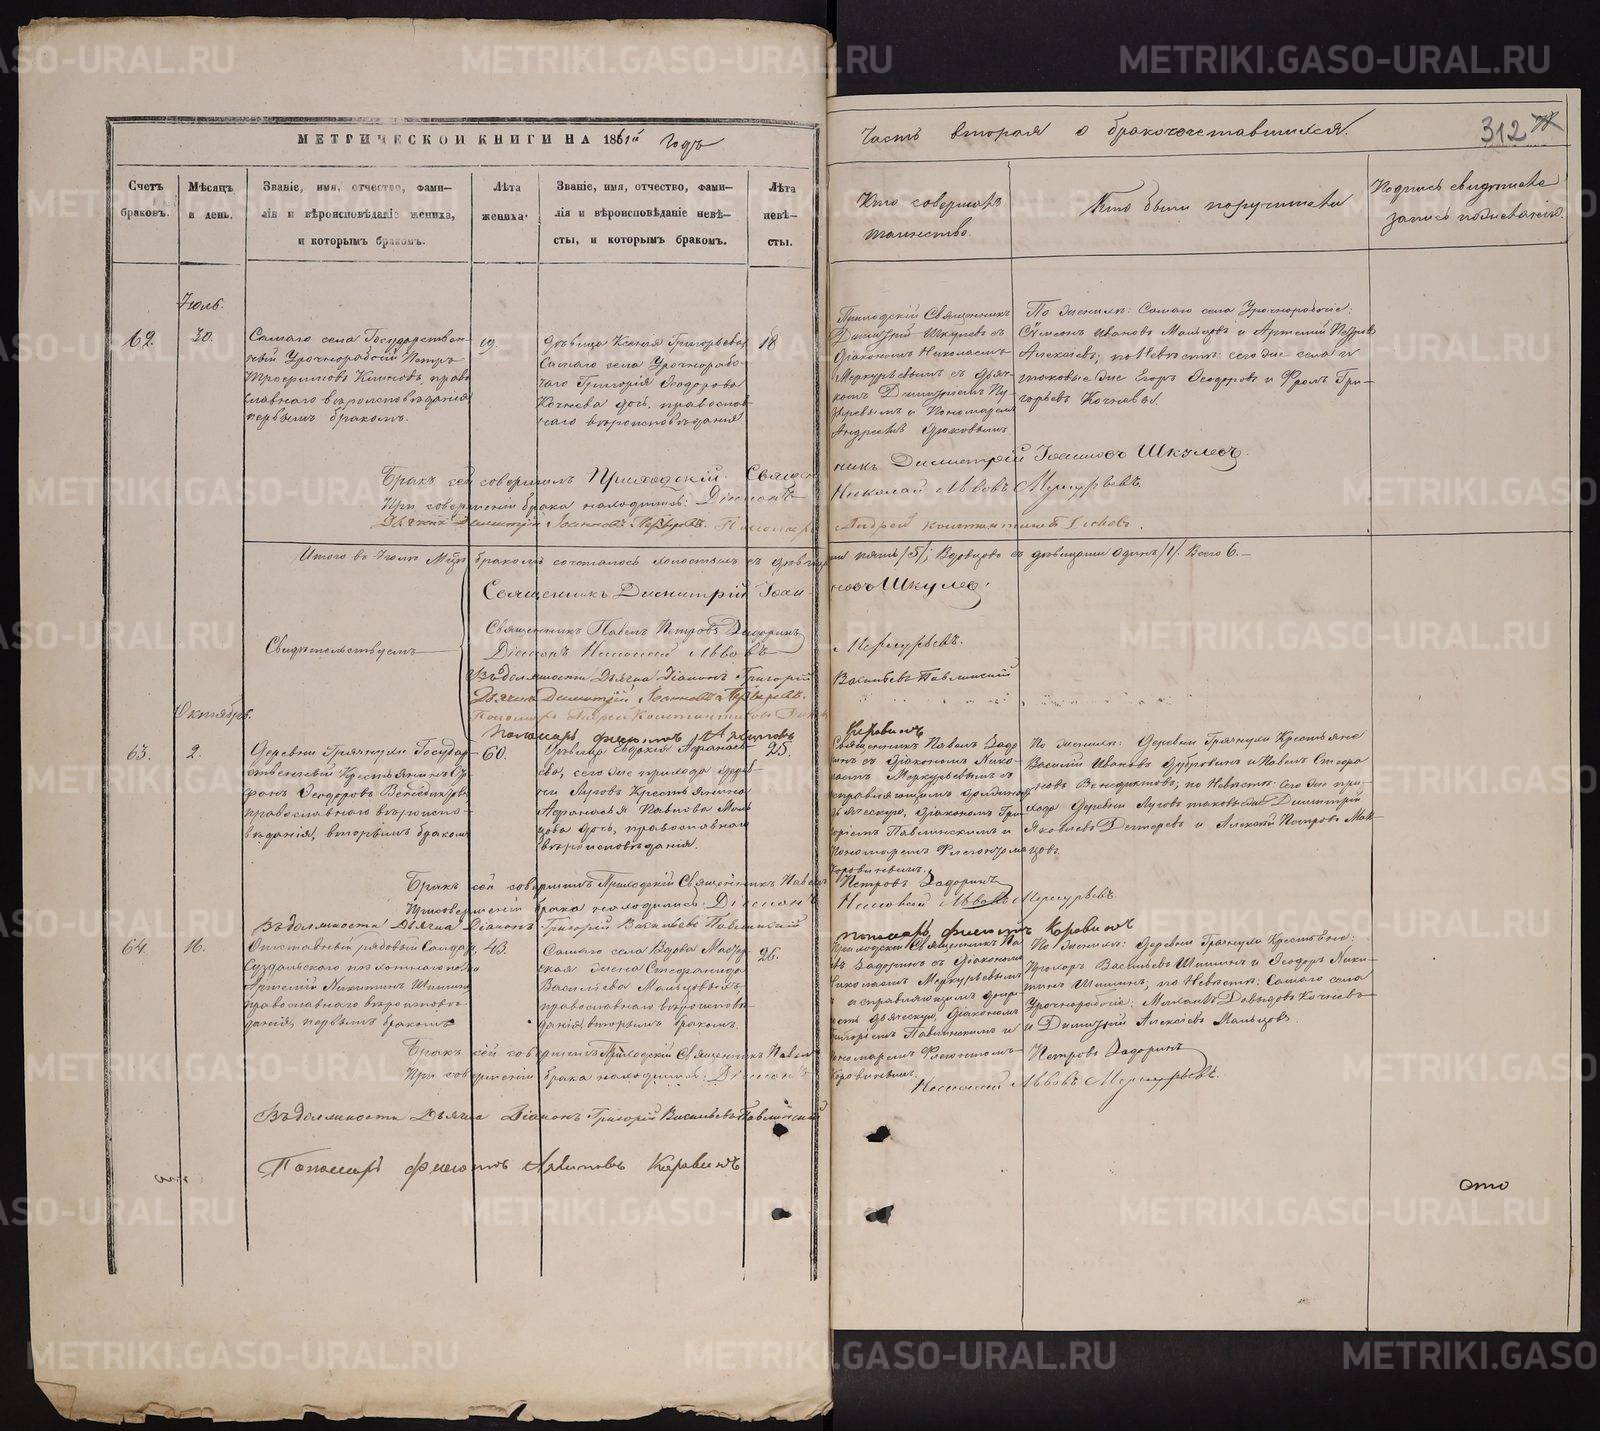 МЕТРИЧЕСКОЙ КНИГИ НА 1861й Годъ
Счетъ браковъ.
Мѣсяцъ и день.
Званіе, имя, отчество, фами-
лія и вѣроисповѣданіе жениха,
и которымъ бракомъ.
Лѣта
жениха.
Званіе, имя, отчество, фами-
лія и вѣроисповѣданіе невѣ-
сты, и которымъ бракомъ.
Лѣта
невѣ-
сты.
Часть вторая о бракосочетавшихся.
312
Кто совершалъ
таинство.
Кто были поручители
Подпись свидѣтелей
Іюль.
62.
30.
Самаго села Государствен-
ный Урочнорабочій Петръ
Трофимовъ Климовъ, право
славнаго вѣроисповѣданія
первымъ бракомъ.
19.
Дѣвица Ксенія Григорьева
Самаго села Урочнорабо-
чаго Григорія Ѳеодорова
Кочнева дочь, православ
наго вѣроисповѣданія
18
Приходскій Священникъ
Димитрій Шкулевъ съ
Діакономъ Николаемъ
Меркурьевымъ съ Дьяч-
комъ Димитріемъ
и Пономаремъ
Андреемъ
По женихѣ: Самаго села Урочнорабочіе:
Симеонъ Ивановъ Мальцовъ и Артемій Петровъ
Алексѣевъ; по Невѣстѣ: сего же села и
таковые же Егоръ Ѳеодоровъ и Фролъ Гри-
горьевъ Кочневы.
Бракъ сей совершилъ Приходскій Священ
никъ Димитрій Іоанновъ Шкулевъ.
При совершеніи брака находился: Діаконъ
Николай Львовъ Меркурьевъ.
Дьячекъ Димитрій Іоанновъ
Пономарь Андрей Константиновъ
Итого въ Іюлѣ Мцѣ бракомъ сочеталось холостыхъ съ дѣвицами пять /5/; Вдовцовъ съ дѣвицами одинъ /1/. Всего 6.—
Священникъ Димитрій Іоанновъ Шкулевъ.
Свидѣтельствуемъ
Священникъ Павелъ Петровъ Задоринъ
Діаконъ Николай Львовъ Меркурьевъ.
Въ должности Дьячка Діаконъ Григорій Васильевъ Павлинскій
Дьячекъ Димитрій Іоанновъ
Пономарь Андрей Константиновъ
Пономарь Флегонтъ Архиповъ Коровинъ
Октябрь.
63.
2.
Деревни Грязнухи Государ
ственный Крестьянинъ
Ѳеодоровъ Венедиктовъ
православнаго вѣроиспо-
вѣданія, вторымъ бракомъ
60.
Дѣвица Евдокія Афанась-
ева, сего же прихода дерев-
ни Луговъ Крестьянина
Афанасья Павлова Маль
цова дочь, православнаго
вѣроисповѣданія.
25.
Священникъ Павелъ Задор
инъ съ Діакономъ Нико-
лаемъ Меркурьевымъ съ
исправляющимъ должность
дьяческую, Діакономъ Гри
горіемъ Павлинскимъ и
Пономаремъ Флегонтомъ
Коровинымъ.
По женихѣ: Деревни Грязнухи Крестьяне
Василій Ивановъ Дубровинъ и Павелъ Стефа
новъ Венедиктовъ, по Невѣстѣ: Сего же при-
хода Деревни Луговъ таковые же Димитрій
Яковлевъ Дегтеревъ и Алексѣй Петровъ Маль-
цовъ.
Бракъ сей совершилъ Приходскій Священникъ Павелъ
Петровъ Задоринъ
При совершеніи брака находились: Діаконъ
Николай Львовъ Меркурьевъ.
Въ должности Дьячка Діаконъ Григорій Васильевъ Павлинскій
Пономарь Флегонтъ Коровинъ
64.
16.
Отставный рядовый Солдатъ
Суздальскаго пѣхотнаго полка
Артемій Никитинъ Шишинъ
православнаго вѣроисповѣ-
данія, первымъ бракомъ
43.
Самаго села Вдова Мастер
ская жена Стефанида
Васильева Мальцовыхъ
православнаго вѣроисповѣ
данія, вторымъ бракомъ.
26.
Приходскій Священникъ Па-
велъ Задоринъ съ Діакономъ
Николаемъ Меркурьевымъ
и исправляющимъ долж-
ность дьяческую, Діакономъ
Григоріемъ Павлинскимъ и
Пономаремъ Флегонтомъ
Коровинымъ.
По женихѣ: Деревни Грязнухи Крестьяне:
Прохоръ Васильевъ Шишинъ и Ѳеодоръ Ники-
тинъ Шишинъ; по Невѣстѣ: Самаго села
Урочнорабочіе: Михаилъ Давыдовъ Кочневъ
и Димитрій Алексѣевъ Мальцовъ.
Бракъ сей совершилъ Приходскій Священникъ Павелъ
Петровъ Задоринъ
При совершеніи брака находились: Діаконъ
Николай Львовъ Меркурьевъ.
Въ должности Дьячка Діаконъ Григорій Васильевъ Павлинскій
Пономарь Флегонтъ Архиповъ Коровинъ
METRIKI.GASO-URAL.RU